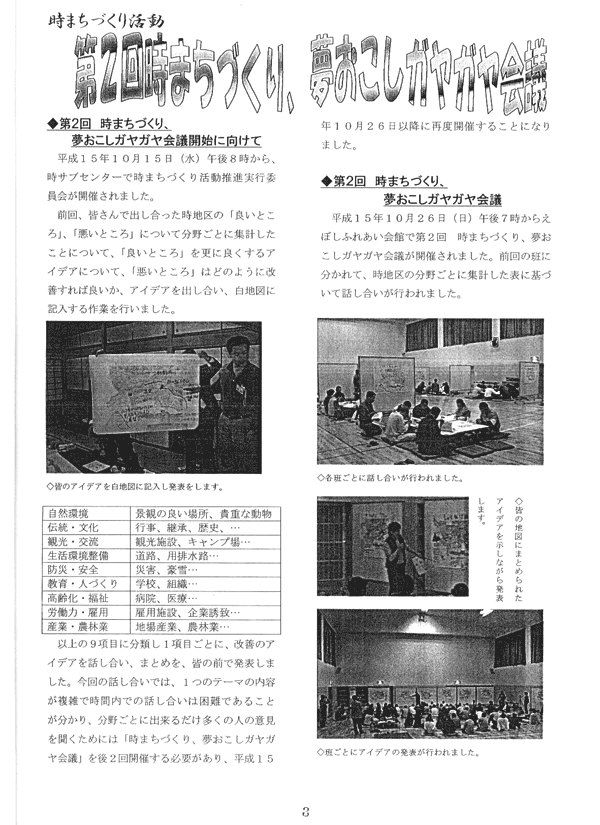 時まちづくり活動
第2回時まちづくり、夢おこしガヤガヤ会議
◆第2回　時まちづくり、
夢おこしガヤガヤ会議開始に向けて
　平成１５年１０月１５日（水）午後８時から、
時サブセンターで時まちづくり活動推進実行委
員会が開催されました。
　前回、皆さんで出し合った時地区の「良いとこ
ろ」、「悪いところ」について分野ごとに集計した
ことについて、「良いところ」を更に良くするア
イデアについて、「悪いところ」はどのように改
善すれば良いか、アイデアを出し合い、白地図に
記入する作業を行いました。
◇皆のアイデアを白地図に記入し発表をします。
自然環境　景観の良い場所、貴重な動物
伝統・文化　行事、継承、歴史、…
観光・交流　観光施設、キャンプ場…
生活環境整備　道路、用排水路…
防災・安全　災害、豪雪…
教育・人づくり　学校、組織…
高齢化・福祉　病院、医療…
労働力・雇用　雇用施設、企業誘致…
産業・農林業　地場産業、農林業…
　以上の９項目に分類し１項目ごとに、改善のア
イデアを話し合い、まとめを、皆の前で発表しま
した。今回の話し合いでは、１つのテーマの内容
が複雑で時間内での話し合いは困難であること
が分かり、分野ごとに出来るだけ多くの人の意見
を聞くためには「時まちづくり、夢おこしガヤガ
ヤ会議」を後２回開催する必要があり、平成１５
年１０月２６日以降に再度開催することになり
ました。
◆第2回　時まちづくり、
夢おこしガヤガヤ会議
　平成１５年１０月２６日（日）午後７時からえ
ぼしふれあい会館で第２回　時まちづくり、夢お
こしガヤガヤ会議が開催されました。前回の班に
分かれて、時地区の分野ごとに集計した表に基づ
いて話し合いが行われました。
◇各班ごとに話し合いが行われました。
◇皆の地図にまとめられた
アイデアを示しながら発表
します。
◇班ごとにアイデアの発表が行われました。
3